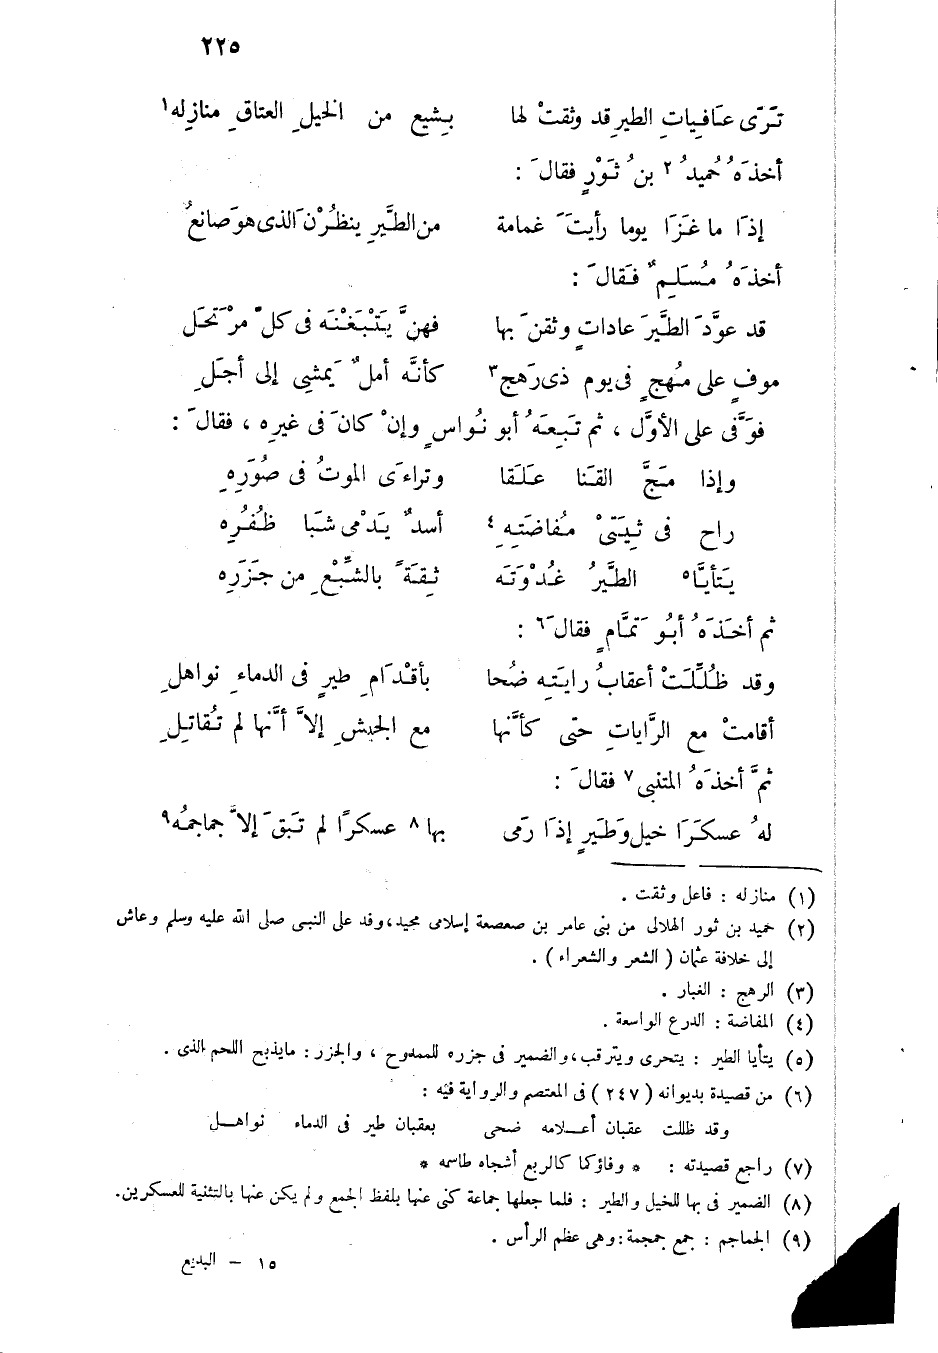 ٢٢٥
تَرَى عَافِياتِ الطيرِ قد وثقتْ لها بِشبعٍ من الخيلِ العتاقِ منازله١
أخذَهُ حُميدُ٢ بنُ ثَوْرٍ فقالَ :
إذَا ما غَزَا يوما رأيتَ غمامة من الطَّيرِ ينظُرْنَ الذى هوَ صانعُ
أخذَهُ مُسَلمٌ فَقالَ :
قد عوَّدَ الطَّيرَ عاداتٍ وثقنَ بها فهنَّ يَتْبَعْنَه فى كلِّ مرْتحَلِ
موفٍ على مُهجٍ فى يوم ذى رَهج٣ كأنَّه أملٌ يَمشِى إلى أجَلِ
فوَفَّى على الأوَّل ، ثم تَبِعَهُ أبو نُواسٍ وإنْ كانَ فى غيرِه ، فقالَ :
وإذا مَجَّ القَنا عَلَقا وتراءَى الموتُ فى صُوَرِهِ
راح فى ثِيَتىْ مُفاضَتِهِ٤ أسدٌ يَدْمى شَبَا ظُفُرِه
يَتَأيَّا٥ الطَّيرُ غُدْوَتَه ثِقةً بالشِّبْعِ من جَزَرِه
ثم أخَذَهُ أبُو تَمَّامٍ فقالَ٦ :
وقد ظُلِّلَتْ أعقابُ رايَتِه ضُحا بأقْدَامِ طيرٍ فى الدماءِ نواهلِ
أقامتْ مع الرَّاياتِ حتى كأنَّها مع الجيشِ إلاَّ أنَّها لم تُقاتِلِ
ثمَّ أخذَهُ المتنبى٧ فقالَ :
لهُ عسكَرَا خيلٍ وَطَيرٍ إذَا رَمى بها٨ عسكرًا لم تَبقَ إلاَّ جماجمُه٩
(١) منازله : فاعل وثقت .
(٢) حميد بن ثور الهلالى من بنى عامر بن صعصعة إسلامى مجيد،وفد على النبى صلى الله عليه وسلم وعاش
إلى خلافة عثمان ( الشعر والشعراء ) .
(٣) الرهج : الغبار .
(٤) المفاضة : الدرع الواسعة .
(٥) يتأيا الطير : يتحرى ويترقب،والضمير فى جزره للممدوح ، والجزر: مايذبح اللحم الذى .
(٦) من قصيدة بديوانه ( ٢٤٧ ) فى المعتصم والرواية فيه :
وقد ظللت عقبان أعـلامه ضحى بعقبان طير فى الدماء نواهـل
(٧) راجع قصيدته : * وفاؤكما كالربع أشجاه طاسمه *
(٨) الضمير فى بها للخيل والطير : فلما جعلها جماعة كنى عنها بلفظ الجمع ولم يكن عنها بالتثنية للعسكرين.
(٩) الجماجم : جمع جمجمة:وهى عظم الرأس .
١٥ – البديع